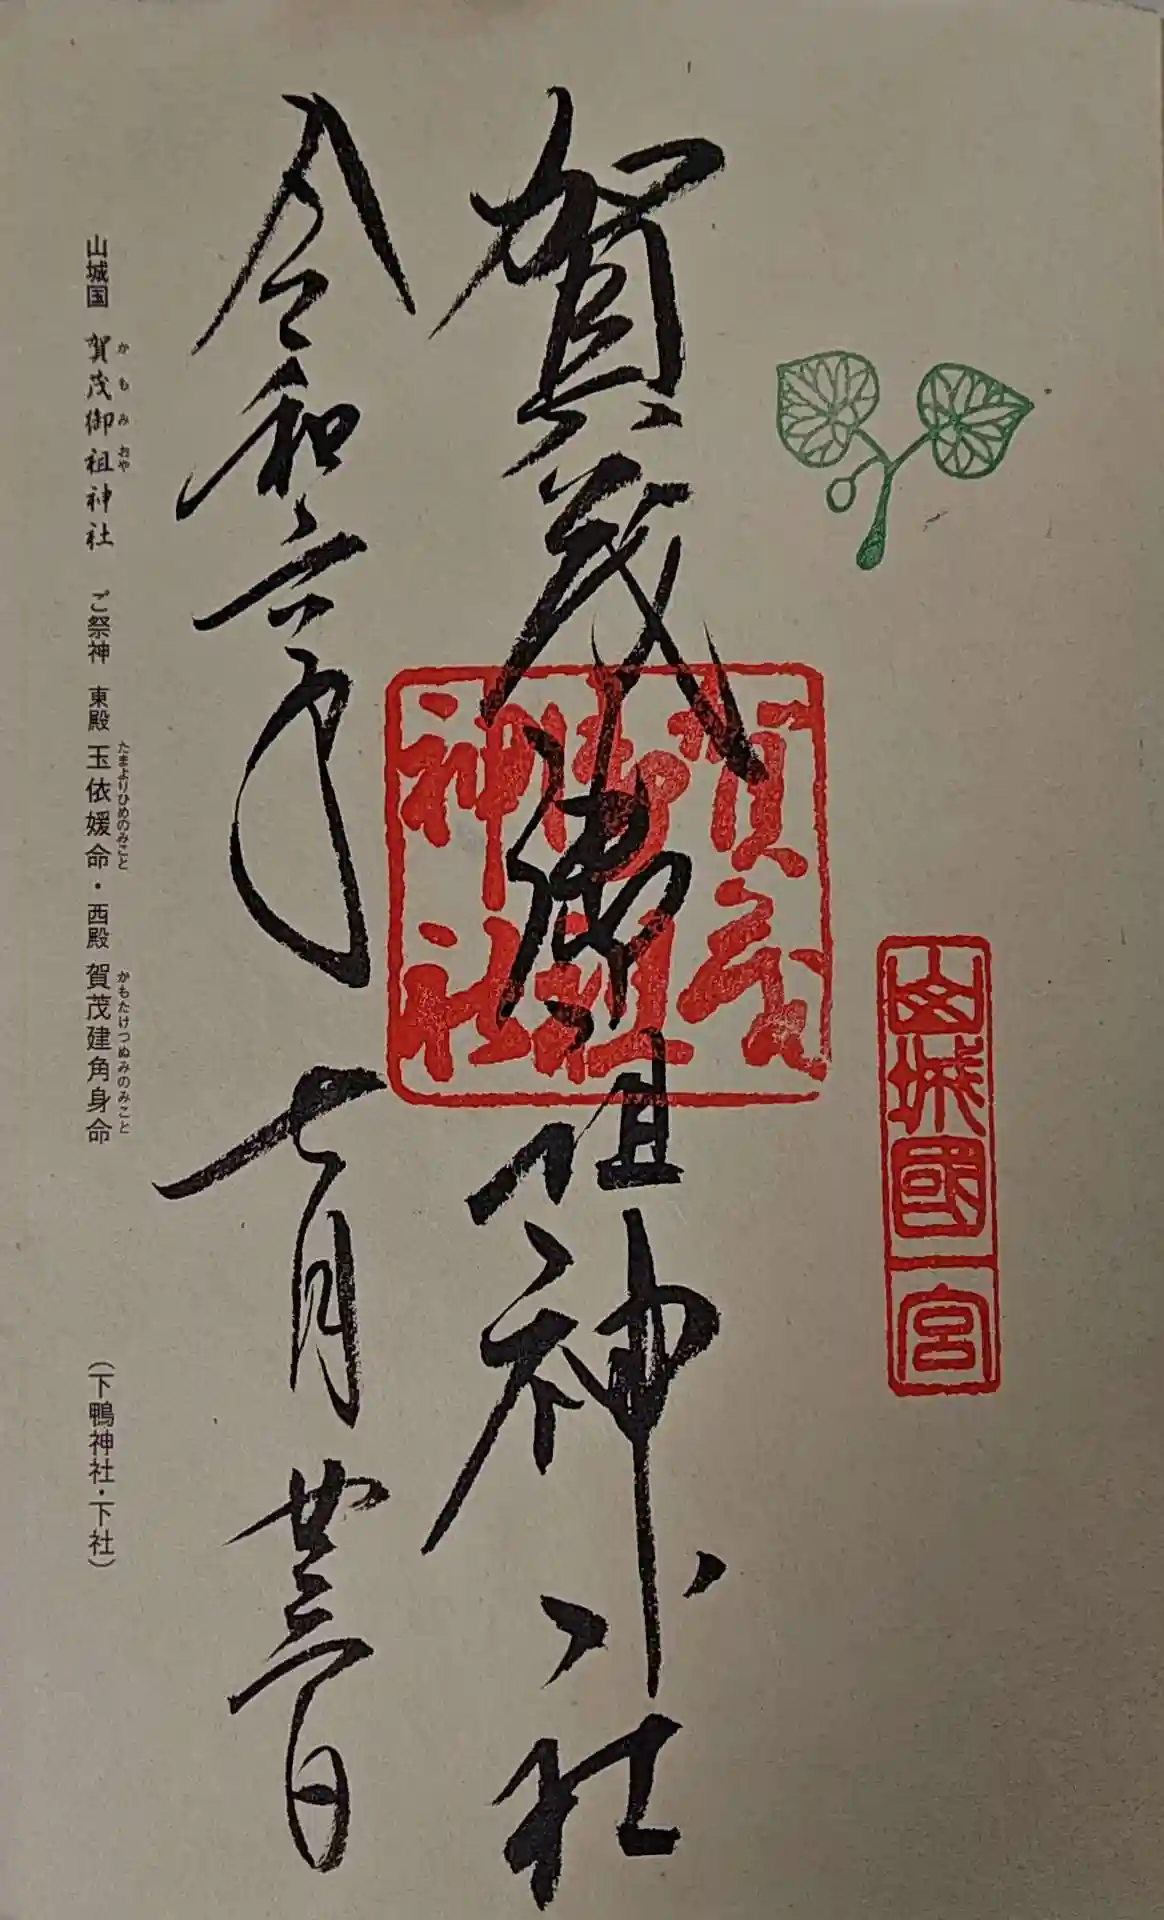 山城國一宮
賀茂御祖神社
賀茂
御祖
神社
令和六年七月廿三日
山城国 賀茂御祖神社 ご祭神 東殿 玉依媛命・西殿 賀茂建角身命 (下鴨神社・下社)
かもみおや
たまよりひめのみこと
かもたけつぬみのみこと